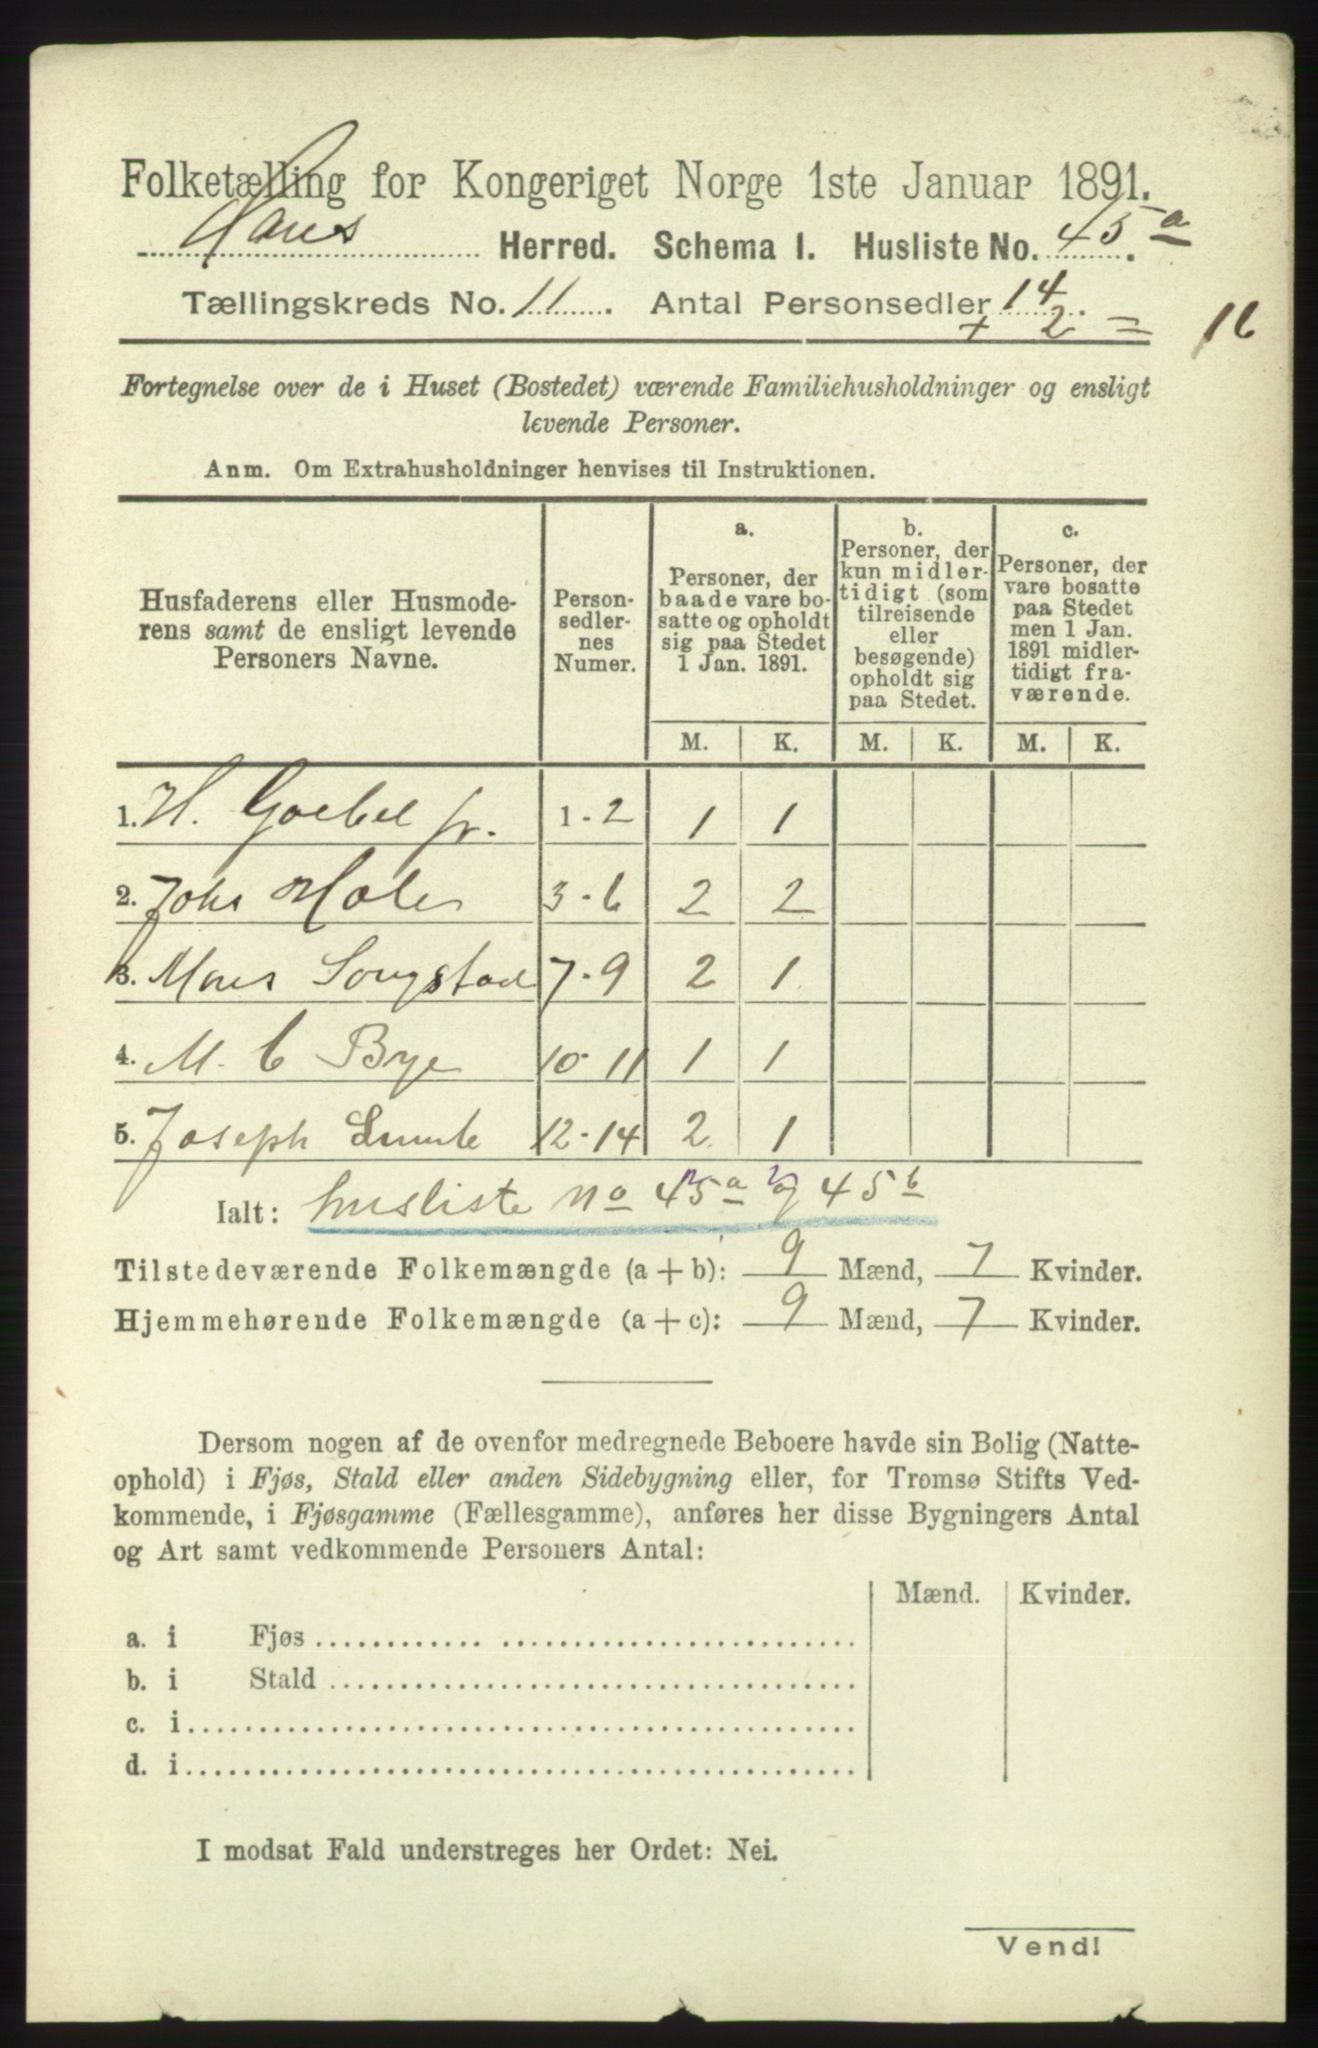 Folketælling for Kongeriget Norge 1ste Januar 1891.
Haus Herred. Schema I. Husliste No. 45 a
Tællingskreds No. 11. Antal Personsedler 14.
+ 2 = 16
Fortegnelse over de i Huset (Bostedet) værende Familiehusholdninger og ensligt
levende Personer.
Anm. Om Extrahusholdninger henvises til Instruktionen.
Husfaderens eller Husmode-
rens samt de ensligt levende
Personers Navne.
Person-
sedler-
nes
Numer.
a.
Personer, der
baade vare bo-
satte og opholdt
sig paa Stedet
1 Jan. 1891.
b.
Personer, der
kun midler-
tidigt (som
tilreisende
eller
besøgende)
opholdt sig
paa Stedet.
c.
Personer, der
vare bosatte
paa Stedet
men 1 Jan.
1891 midler-
tidigt fra-
værende.
M. K. M. K. M. K.
1. H. Goebel jr. 1-2 1 1
2. Johs 3-6 2 2
3. Mons 7-9 2 1
4. M. C Bye 10-11 1 1
5. Joseph 12-14 2 1
Ialt: husliste no 45 a og 45 b
Tilstedeværende Folkemængde (a + b): 9 Mænd, 7 Kvinder.
Hjemmehørende Folkemængde (a + c): 9 Mænd, 7 Kvinder.
Dersom nogen af de ovenfor medregnede Beboere havde sin Bolig (Natte-
ophold) i Fjøs, Stald eller anden Sidebygning eller, for Tromsø Stifts Ved-
kommende, i Fjøsgamme (Fællesgamme), anføres her disse Bygningers Antal
og Art samt vedkommende Personers Antal:
Mænd. Kvinder.
a. i Fjøs
b. i Stald
c. i
d. i
I modsat Fald understreges her Ordet: Nei.
Vend!